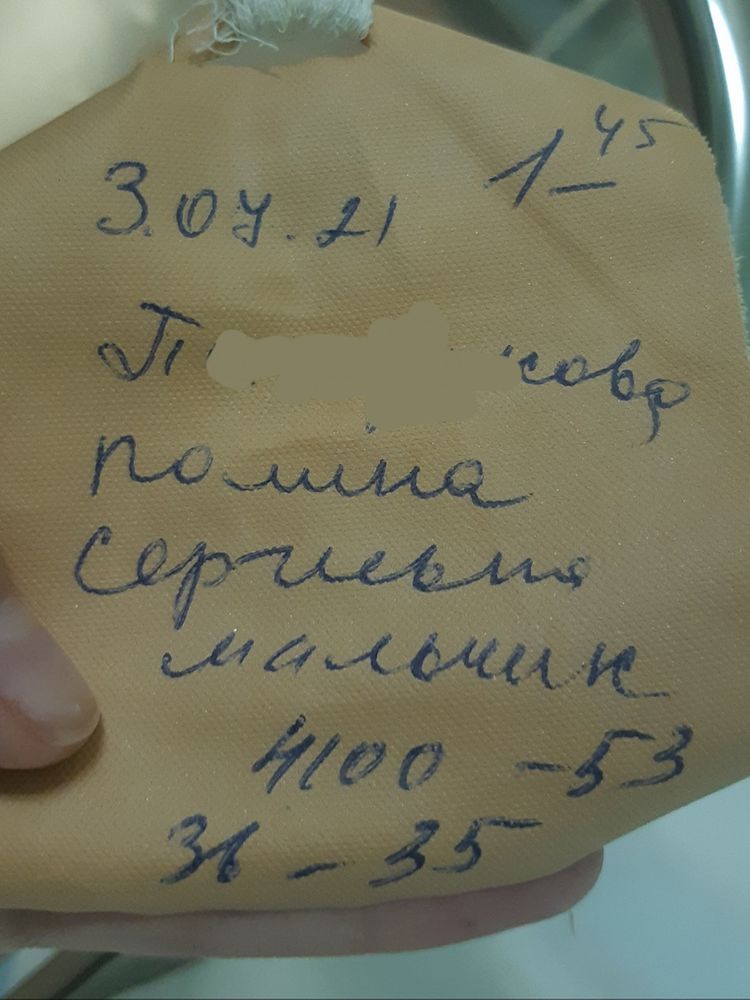 3.07.21 1-45
П сова
Полина
Сергеевна
мальчик
4100 - 53
36 - 35